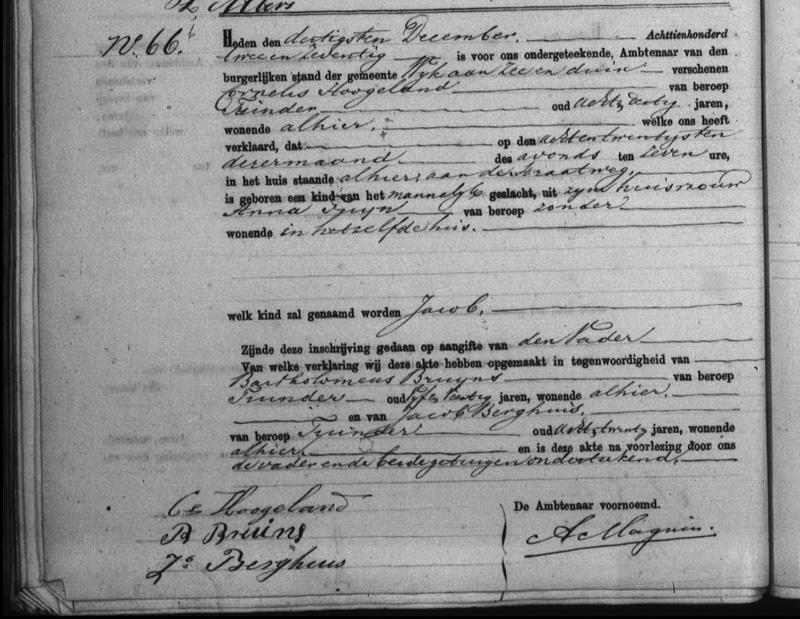 Albers
No. 66. Heden den dertigsten December. Achttienhonderd
twee en zeventig is voor ons ondergeteekende, Ambtenaar van den
burgerlijken stand der gemeente Wyk aan Zee en duin verschenen
Cornelis Hoogeland van beroep
Tuinder oud acht dertig jaren,
wonende alhier. welke ons heeft
verklaard, dat op den acht en twintigsten
dezer maand des avonds ten zeven ure,
in het huis staande alhier aan den straatweg,
is geboren een kind van het mannelyk geslacht, uit zyne huisvrouw
Anna Tuyn van beroep zonder
wonende in hetzelfde huis.
welk kind zal genaamd worden Jacob.
Zijnde deze inschrijving gedaan op aangifte van den Vader
Van welke verklaring wij deze akte hebben opgemaakt in tegenwoordigheid van
Bartholomeus Bruyns van beroep
Tuinder oud veertig jaren, wonende alhier.
en van Jacob Berghuis,
van beroep Tuinder oud acht twintig jaren, wonende
alhier. en is deze akte na voorlezing door ons
de vader en de beide getuigen onderteekend.
Cs Hoogeland De Ambtenaar voornoemd.
B Bruins A Magnin.
Jb Berghuis